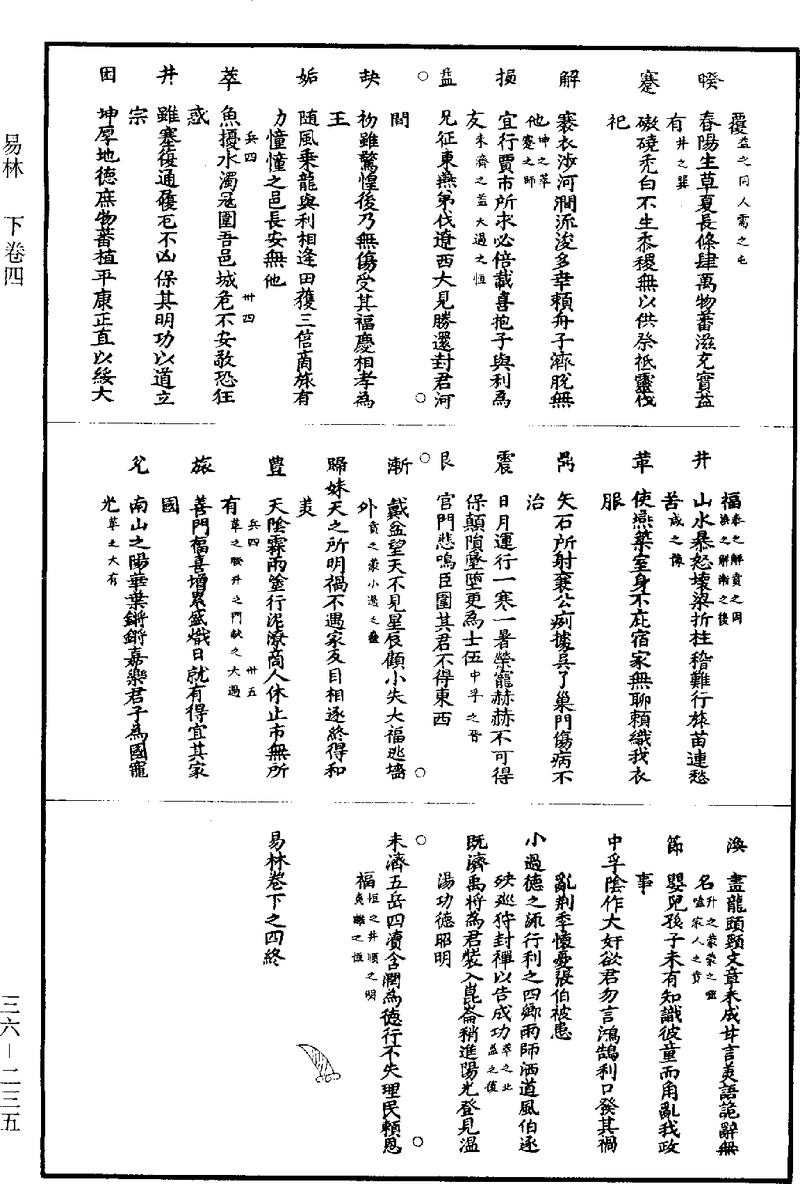 覆益之同人需之屯
睽　春陽生草夏長條肆萬物蕃滋充實益
有井之巽
蹇　磝磽禿白不生黍稷無以供祭祗靈伐
祀
解　褰衣涉河澗流浚多幸賴舟子濟脫無
他坤之萃蹇之師
損　宜行賈市所求必倍載喜抱子與利為
友未濟之益大過之恒
益　兄征東燕弟伐遼西大見勝還封君河
○間○
夬　礿雖驚惶後乃無傷受其福慶相孝為
王
姤　随風乘龍與利相逢田獲三倍商旅有
功憧憧之邑長安無他
兵四　卅四
萃　魚擾水濁冦圍吾邑城危不安敬恐狂
惑
井　雖塞復通履危不凶保其明功以道立
宗
困　坤厚地德庶物蕃植平康正直以綏大
福泰之解賁之同渙之解漸之復
井　山水暴怒壞梁折柱稽難行旅苗連愁
苦咸之豫
革　使燕築室身不庇宿家無聊賴織我衣
服
鼎　矢石所射襄公痾據吳了巢門傷病不
治
震　日月運行一寒一暑榮寵赫赫不可得
保顛隕墜墮更為士伍中孚之晉
艮　宮門悲鳴臣圍其君不得東西
○　○
漸　戴盆望天不見星辰顧小失大福逃墻
外賁之蒙小過之蠱
歸妹　天之所明禍不遇家友目相逐終得和
美
兵四　卅五
豐　天陰霖雨塗行泥潦商人休止市無所
有革之睽升之鬥缺之大過
旅　善門福喜增累盛熾日就有得宜其家
國
兌　南山之陽華葉鏘鏘嘉樂君子為國寵
光革之大有
渙　畫龍頭頸文章未成甘言美語詭辭無
名升之蒙蒙之嗑嗑家人之賁
節　嬰兒孩子未有知識彼童而角亂我政
事
中孚　陰作大奸欲君勿言鴻鵠利口發其禍
亂荆季懷憂張伯被患
小過　德之流行利之四鄉雨師洒道風伯逐
殃巡狩封禪以告成功萃之比益之復
既濟　禹將為君裝入崑崙稍進陽光登見温
湯功德昭明
○　○
未濟　五岳四瀆含潤為德行不失理民賴恩
福恒之井順之明夷離之恒
易林卷下之四終
易林　下卷四
三六－二三五